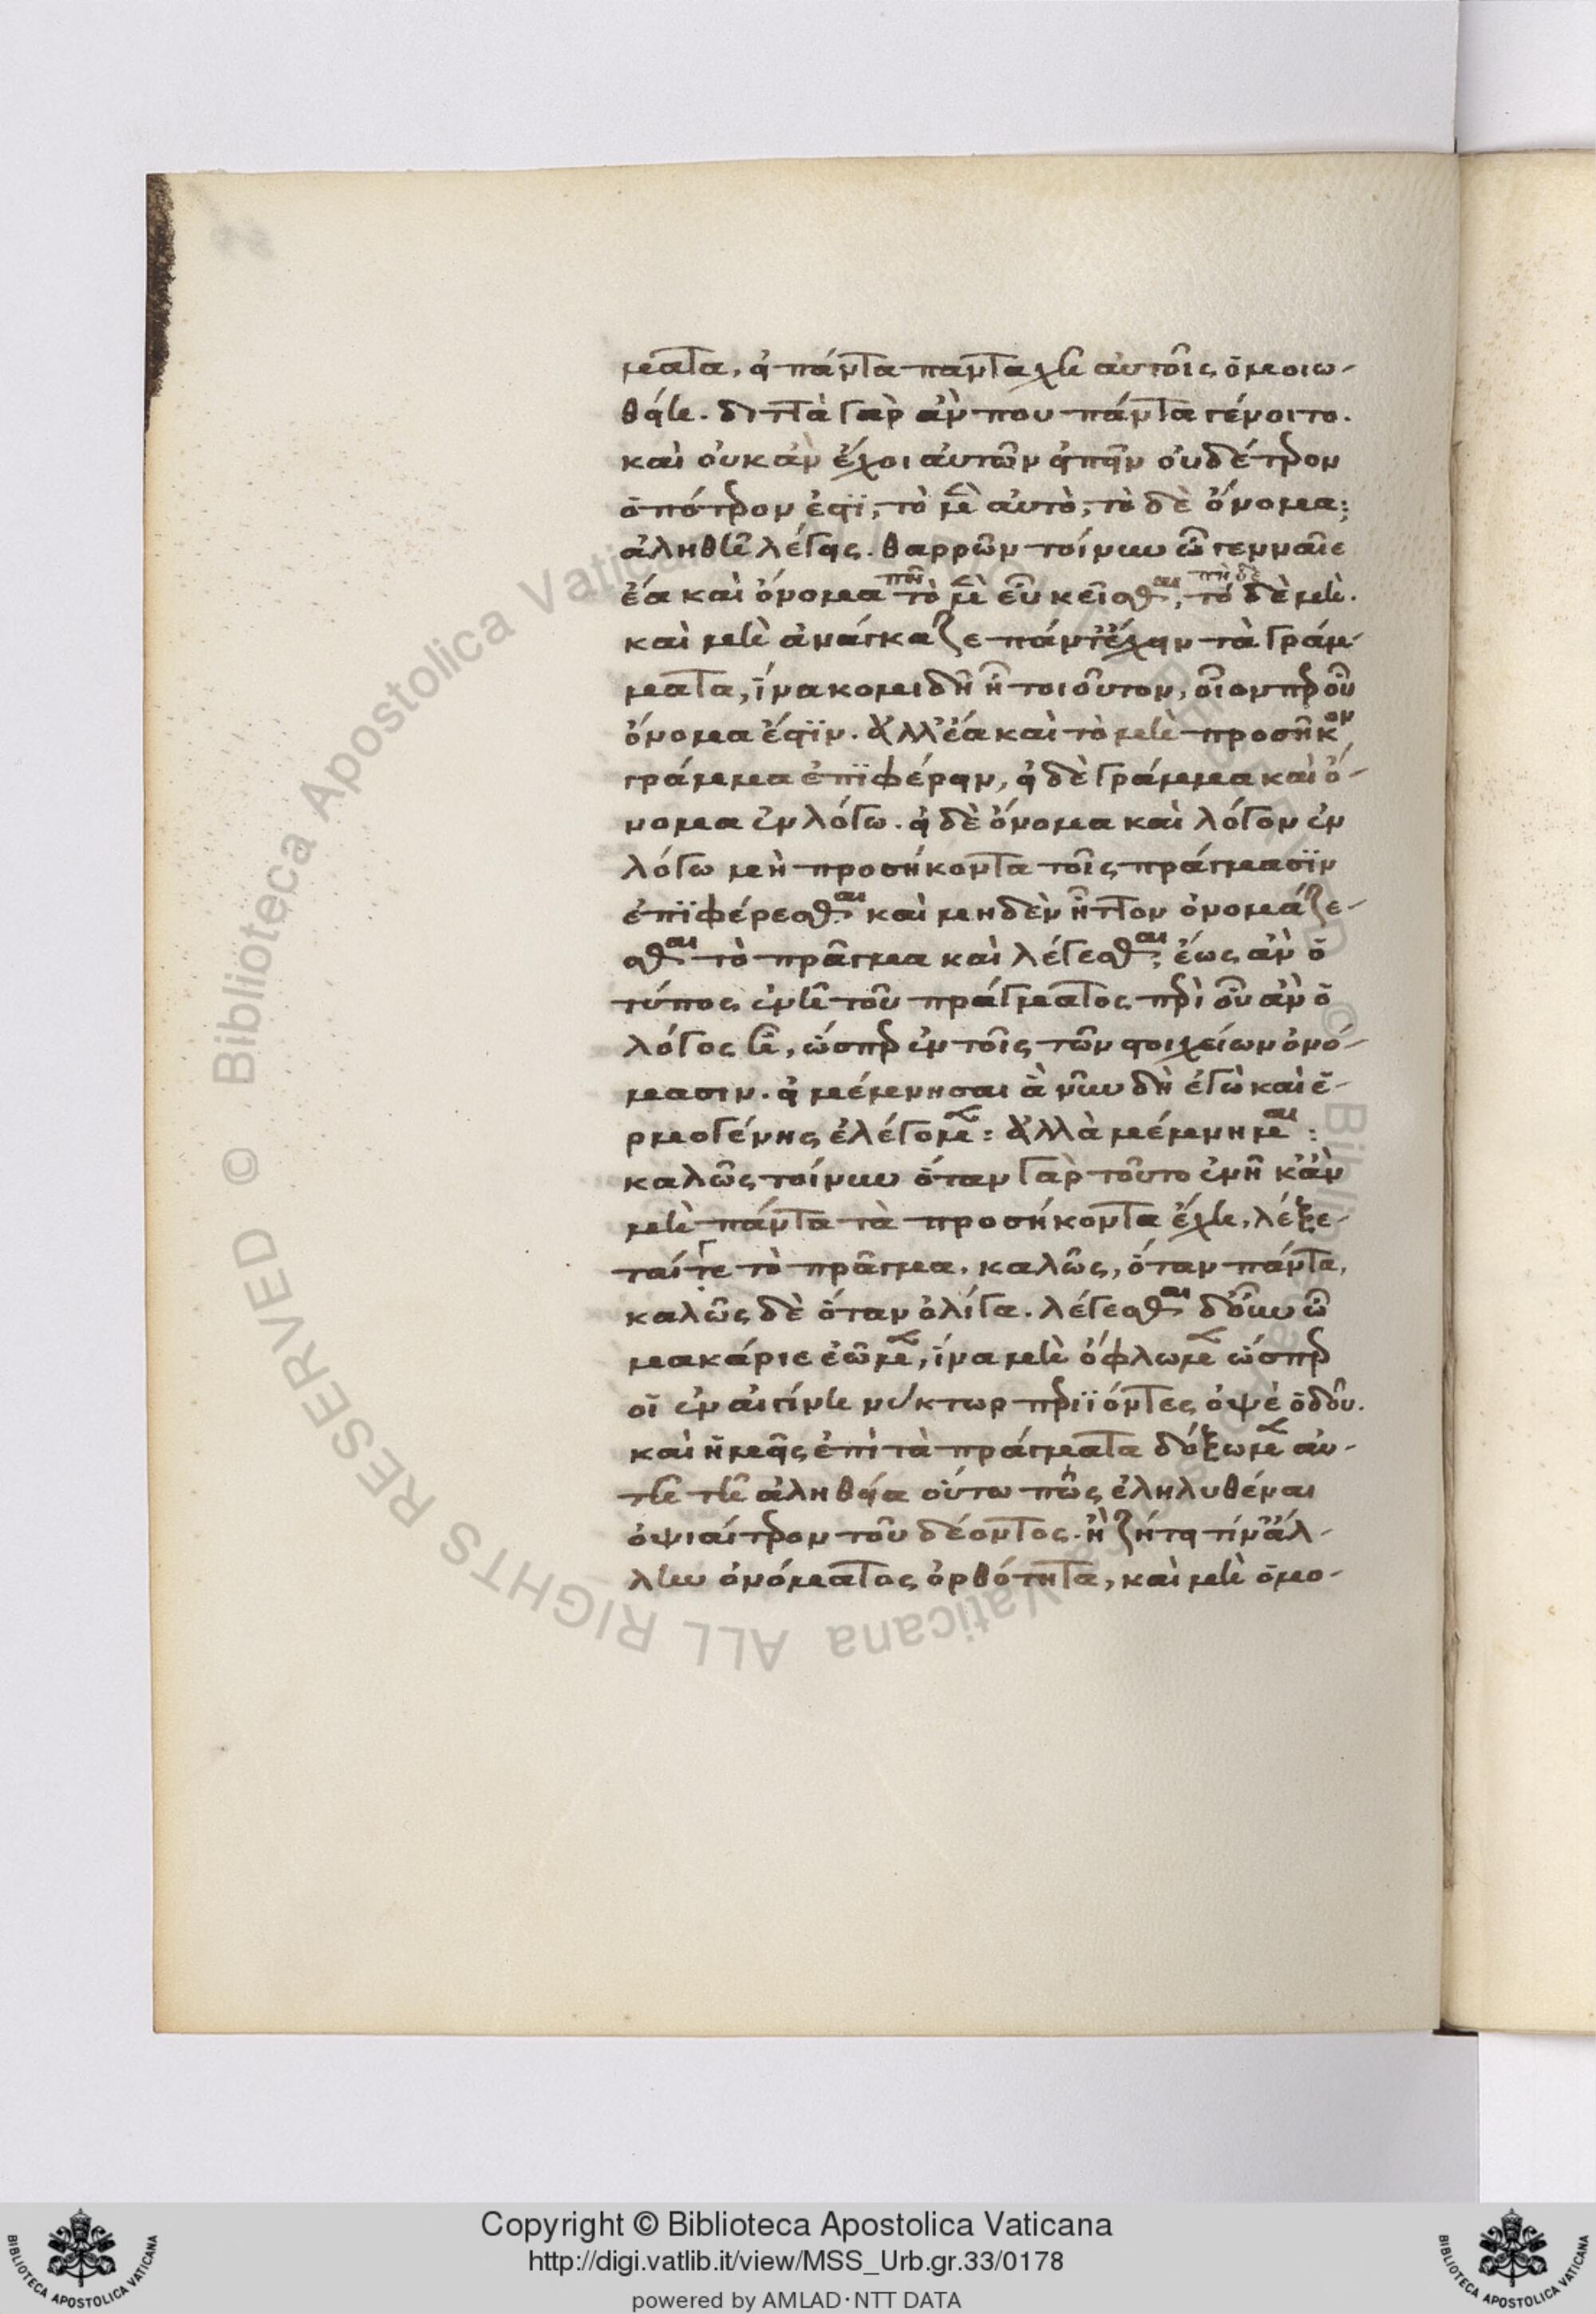 ματα, εἰ πάντα πανταχῆ αὐτοῖς ὁμοιω-
θείη. διττὰ γὰρ ἄν που πάντα γένοιτο.
καὶ οὐκ ἂν ἔχοι αὐτῶν εἰπεῖν οὐδέτερον
ὁπότερον ἐστὶ, τὸ μὲν αὐτὸ, τὸ δὲ ὄνομα;
ἀληθῆ λέγεις. θαρρῶν τοίνυν ὦ γενναῖε
ἔα καὶ ὄνομα τὸ μὲν εὖ κεῖσθαι, τὸ δὲ μή.
καὶ μὴ ἀνάγκαζε πάντ' ἔχειν τὰ γράμ-
ματα, ἵνα κομιδῆ ἦ τοιοῦτον, οἷον περ οὗ
ὄνομα ἐστὶν. ἀλλ' ἔα καὶ τὸ μὴ προσῆκον
γράμμα ἐπιφέρειν, εἰ δὲ γράμμα καὶ ὄ-
νομα ἐν λόγω. εἰ δὲ ὄνομα καὶ λόγον ἐν
λόγω μὴ προσήκοντα τοῖς πράγμασιν
ἐπιφέρεσθαι καὶ μηδὲν ἧττον ὀνομάζε-
σθαι τὸ πρᾶγμα καὶ λέγεσθαι, ἕως ἂν ὁ
τύπος ἐνῆ τοῦ πράγματος περὶ οὗ ἂν ὁ
λόγος ἦ, ὥσπερ ἐν τοῖς τῶν στοιχείων ὀνό-
μασιν. εἰ μέμνησαι ἃ νῦν δὴ ἐγὼ καὶ ἑ-
ρμογένης ἐλέγομεν: ἀλλὰ μέμνημαι:
καλῶς τοίνυν ὅταν γὰρ τοῦτο ἐνῆ κἂν
μὴ πάντα τὰ προσήκοντα ἔχη, λέξε-
ταί γε τὸ πρᾶγμα. καλῶς, ὅταν πάντα,
καλῶς δὲ ὅταν ὀλίγα. λέγεσθαι δ' οὖν ὦ
μακάριε ἐῶμεν, ἵνα μὴ ὄφλωμεν ὥσπερ
οἱ ἐν αἰγίνη νύκτωρ περιϊόντες ὀψὲ ὁδοῦ.
καὶ ἡμεῖς ἐπὶ τὰ πράγματα δόξωμεν αὐ-
τῆ τῆ ἀληθεία οὕτω πῶς ἐληλυθέναι
ὀψιαίτερον τοῦ δέοντος. ἢ ζήτει τίν' ἄλ-
λην ὀνόματος ὀρθότητα, καὶ μὴ ὁμο-
Copyright © Biblioteca Apostolica Vaticana
http://digi.vatlib.it/view/MSS_Urb.gr.33/0178
powered by AMLAD·NTT DATA